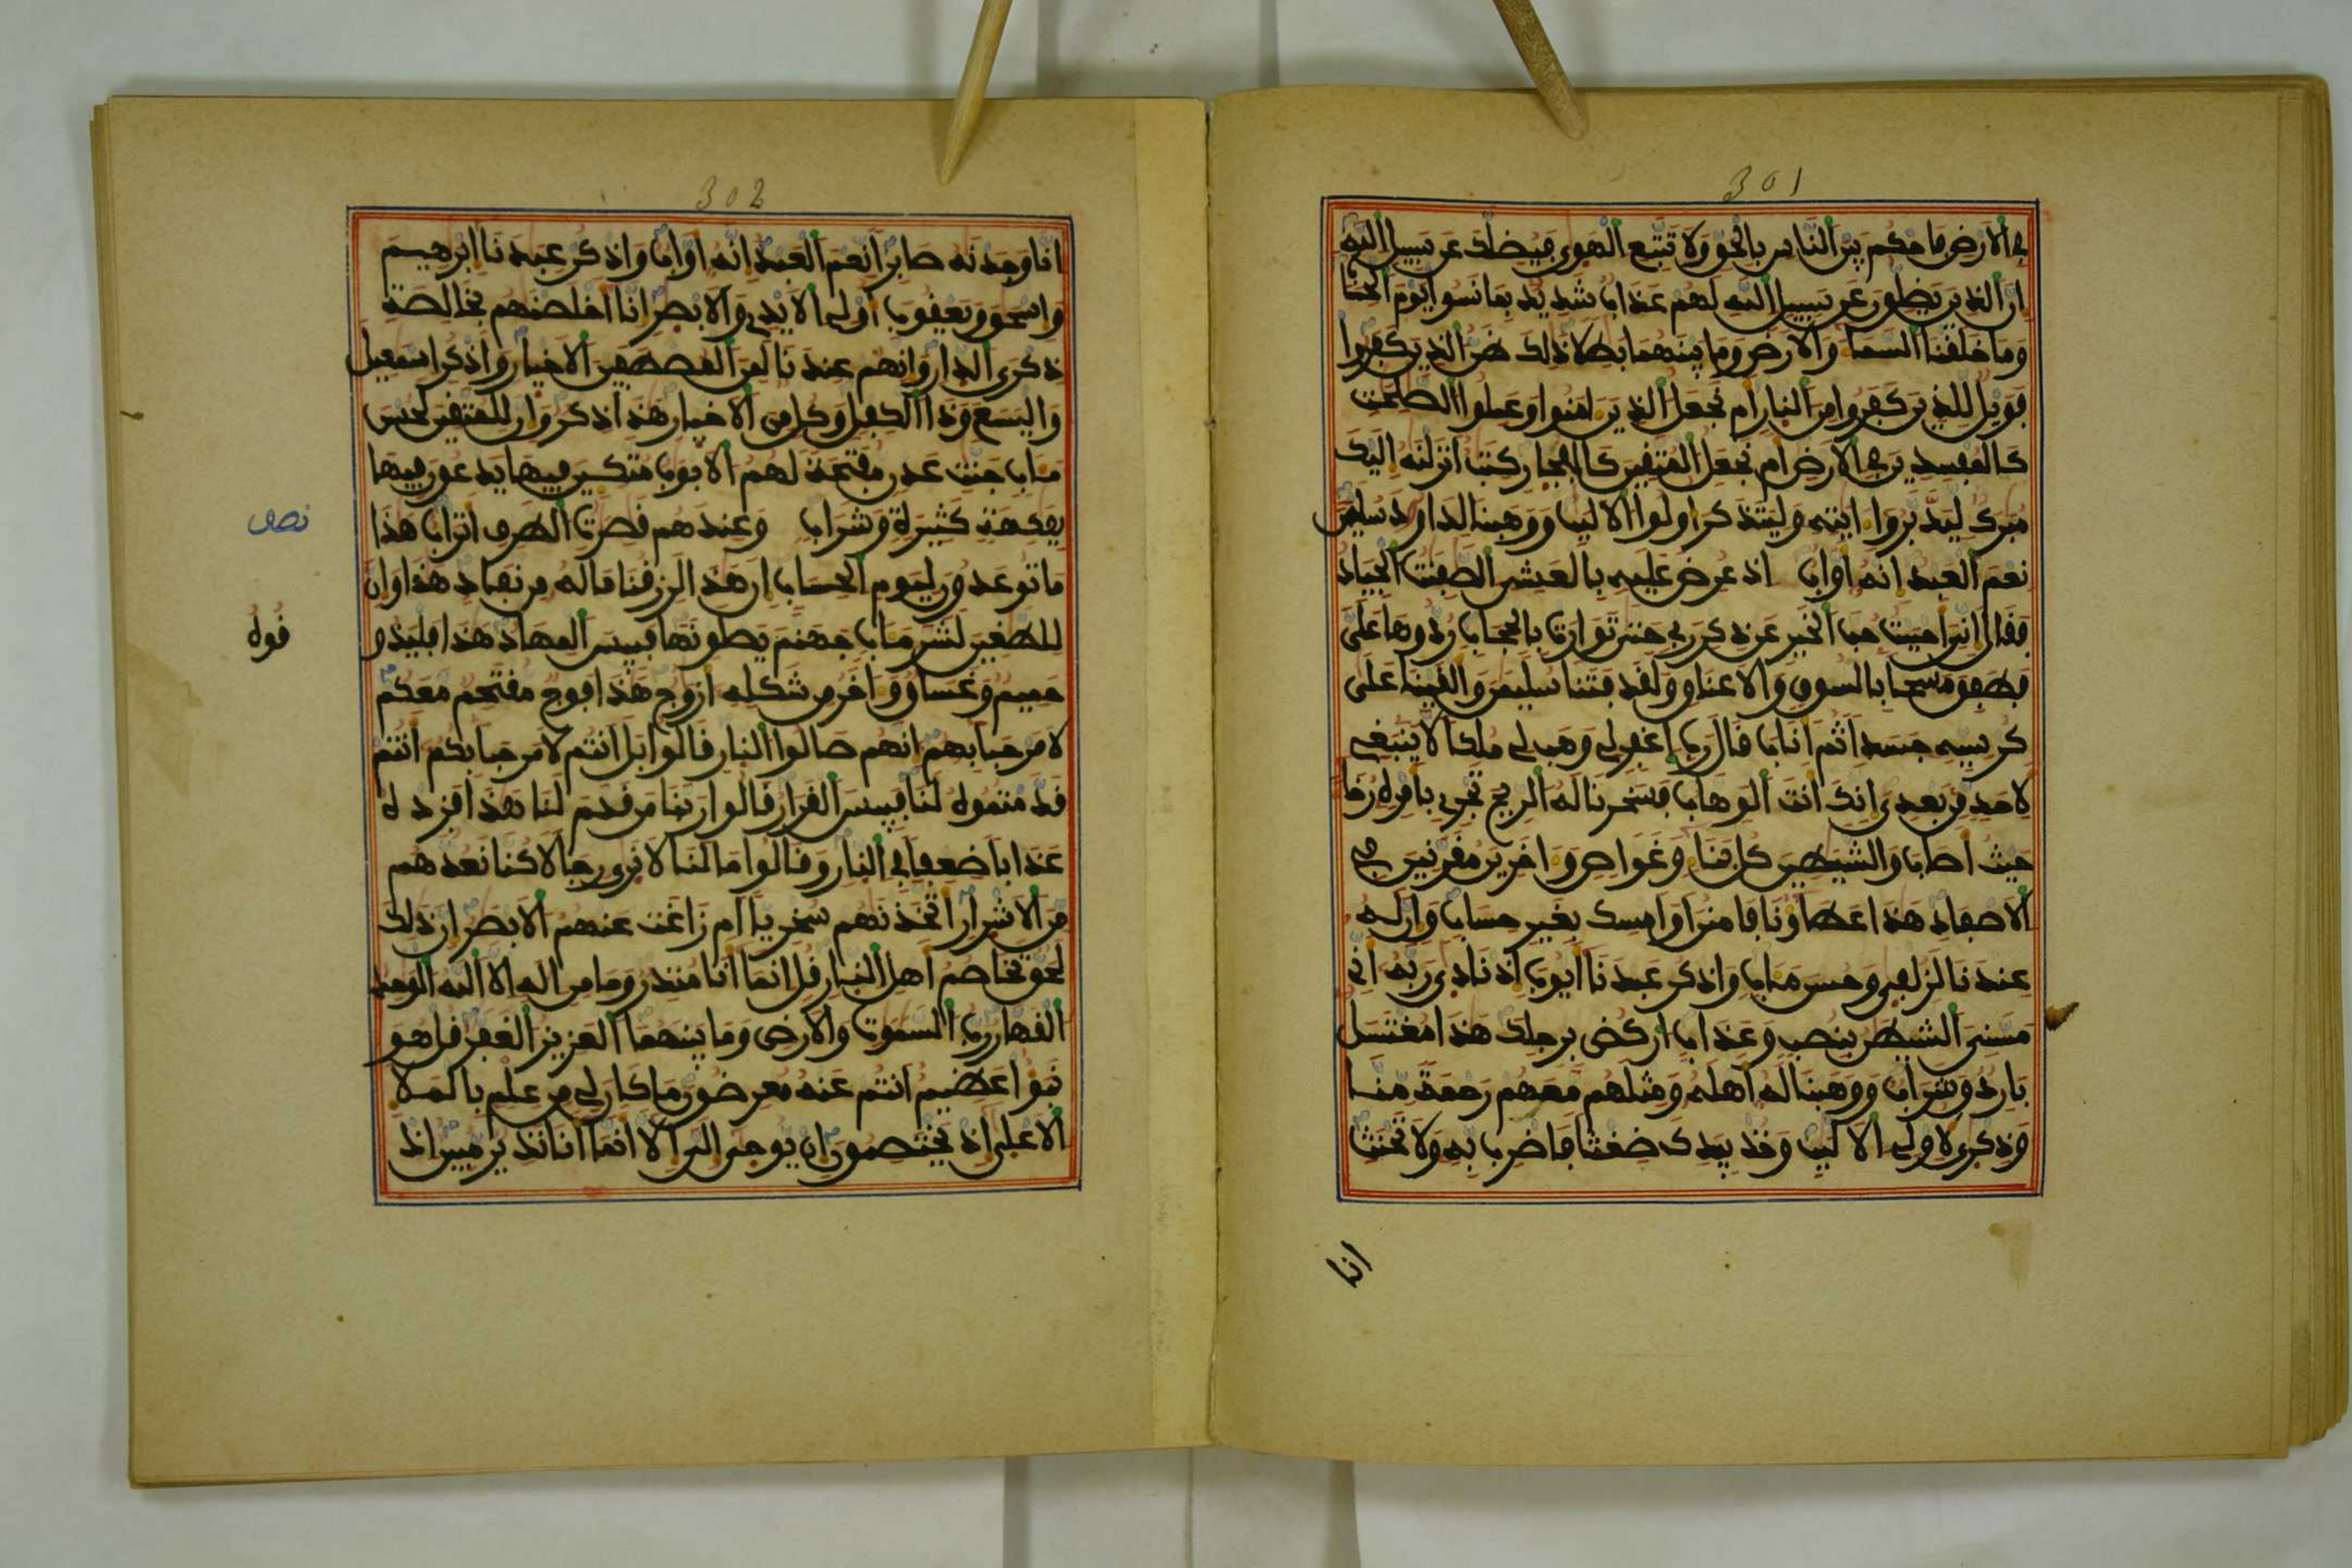 301
في الارض فاحكم بين الناس بالحق ولا تتبع الهوى فيضلك عن سبيل الله
ان الذين يضلون عن سبيل الله لهم عذاب شديد بما نسوا يوم الحساب
وما خلقنا السما والارض وما بينهما بطلا ذلك ظن الذين كفروا
فويل للذين كفروا من النار ام نجعل الذين امنوا وعملوا الصلحت
كالمفسدين في الارض ام نجعل المتقين كالفجار كتب انزلنه اليك
مبرك ليدبروا ايته وليتذكر اولوا الالبب ووهبنا لداود سليمن
نعم العبد انه اواب اذ عرض عليه بالعشي الصفنت الجياد
فقال اني احببت حب الخير عن ذكر ربي حتى توارت بالحجاب ردوها علي
فطفق مسحا بالسوق والاعناق ولقد فتنا سليمن والقينا على
كرسيه جسدا ثم اناب قال رب اغفر لي وهب لي ملكا لا ينبغي
لاحد من بعدي انك انت الوهاب فسخرنا له الريح تجري بامره رخا
حيث اصاب والشيطين كل بنا وغواص واخرين مقرنين في
الاصفاد هذا عطاونا فامنن او امسك بغير حساب وان له
عندنا لزلفى وحسن مـاب واذكر عبدنا ايوب اذ نادى ربه اني
مسني الشيطن بنصب وعذاب اركض برجلك هذا مغتسل
بارد وشراب ووهبنا له اهله ومثلهم معهم رحمة منا
وذكرى لاولي الالبب وخذ بيدك ضغثا فاضرب به ولا تحنث
انا
302
انا وجدنه صابرا نعم العبد انه اواب واذكر عبدنا ابرهيم
واسحق ويعقوب اولي الايدي والابصر انا اخلصنهم بخالصة
ذكرى الدار وانهم عندنا لمن المصطفين الاخيار واذكر اسمعيل
واليسع وذا الكفل وكل من الاخيار هذا ذكر وان للمتقين لحسن
مـاب جنت عدن مفتحة لهم الابوب متكـين فيها يدعون فيها
بفكهة كثيرة وشراب وعندهم قصرت الطرف اتراب هذا
نصف
ما توعدون ليوم الحساب ان هذا لرزقنا ماله من نفاد هذا وان
للطغين لشر مـاب جهنم يصلونها فبيس المهاد هذا فليذو
قوه
حميم وغساق واخر من شكله ازوج هذا فوج مقتحم معكم
لا مرحبا بهم انهم صالوا النار قالوا بل انتم لا مرحبا بكم انتم
قدمتموه لنا فبيس القرار قالوا ربنا من قدم لنا هذا فزده
عذابا ضعفا في النار وقالوا ما لنا لا نرى رجالا كنا نعدهم
من الاشرار اتخذنهم سخريا ام زاغت عنهم الابصر ان ذلك
لحق تخاصم اهل النار قل انما انا منذر وما من اله الا الله الوحد
القهار رب السموت والارض وما بينهما العزيز الغفر قل هو
نبؤا عظيم انتم عنه معرضون ما كان لي من علم بالملا
الاعلى اذ يختصمون ان يوحى الي الا انما انا نذير مبين اذ